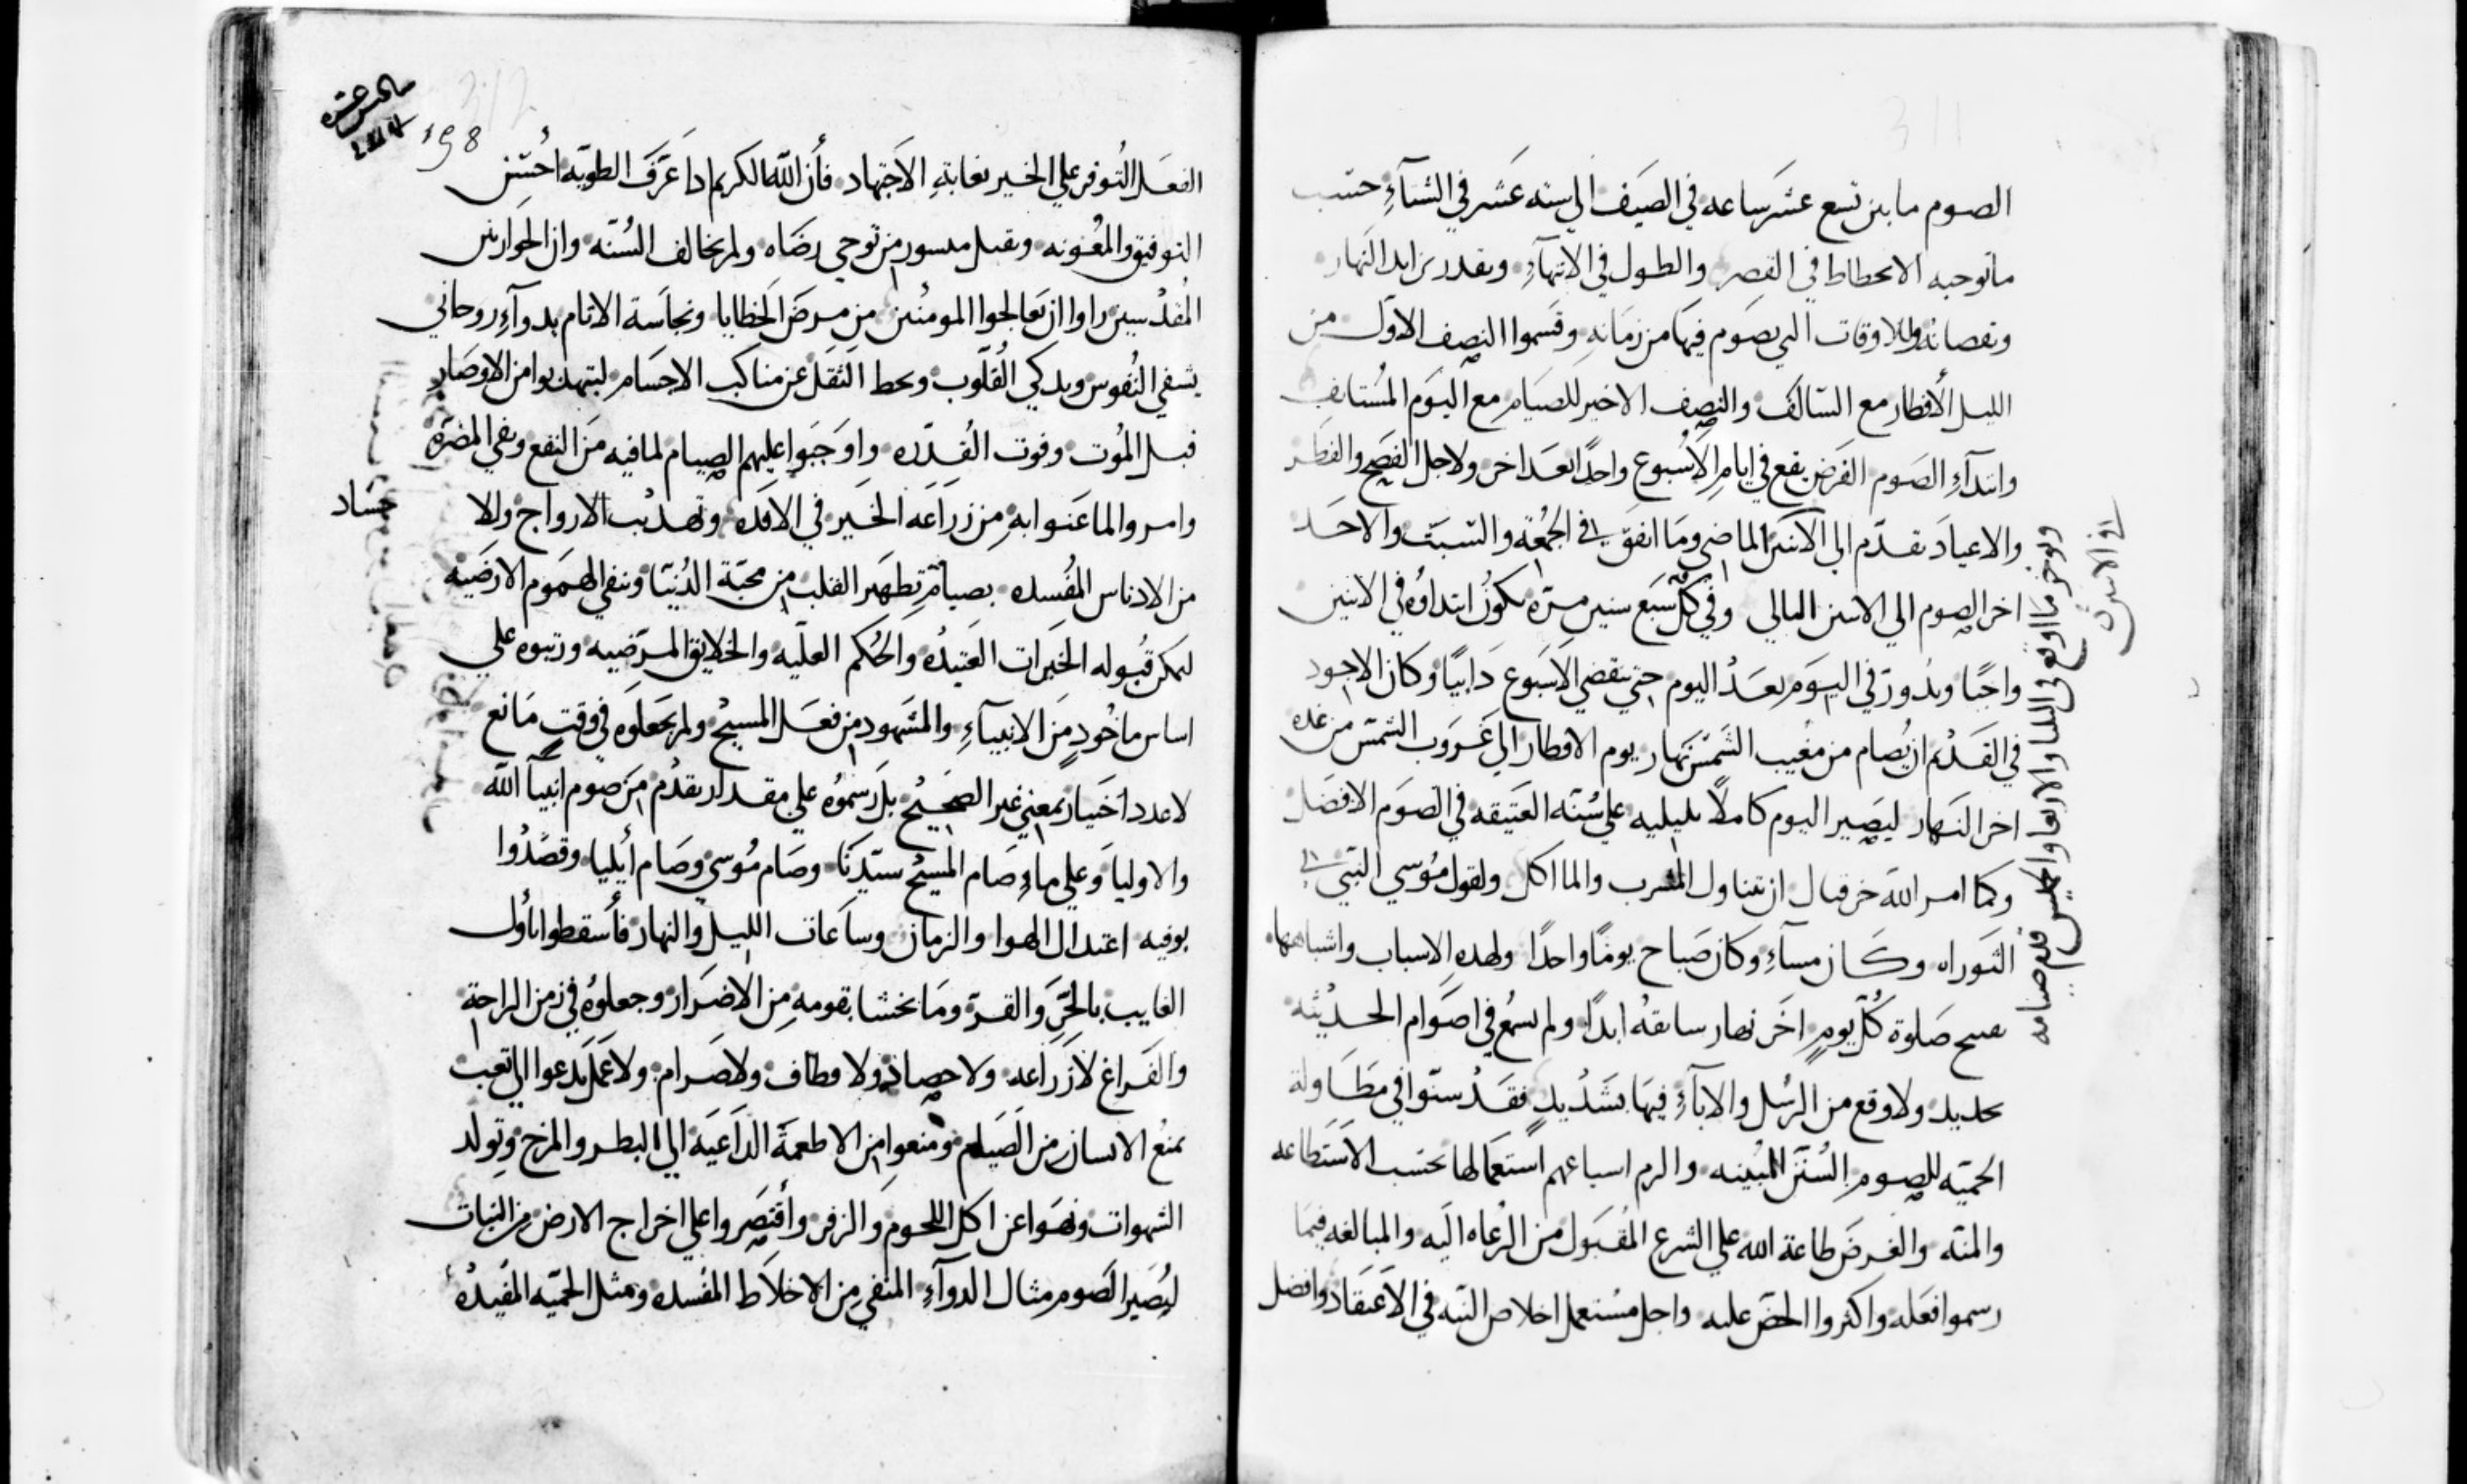 الصوم ما بين تسع عشر ساعه في الصيف الي سته عشر في الشتآءِ حسب
ما توجبه الانحطاط في القصر والطول في الانتهآءِ وبقدر زايد النهار
ونقصانه وللاوقات التي يصوم فيها من زمانه وقسموا النصف الاول من
الليل لأفطار مع السالف والنصف الاخير للصيام مع اليوم المستانف
وابتدآءِ الصوم الفرض يقع في ايام الاسبوع واحدًا بعد اخر ولاجل الفصح والفطر
والاعياد تقدم الي الاثنين الماضي وما اتفق في الجمعة والسبت والاحد
اخر الصوم الي الاثنين التالي وفي كل سبع سنين مره يكون ابتداؤه في الاثنين
واجبًا ويدور في اليوم بعد اليوم حتي ينقضي الاسبوع دايبًا وكان الاجود
في القديم ان يصام من مغيب الشمس نهار يوم الافطار الي غروب الشمس من غده
اخر النهار ليصير اليوم كاملًا بليليه علي سنته العتيقه في الصوم الافضل
وكما امر الله حزقيال ان يتناول المشرب والماكل ولقول موسي النبي في
التوراه وكان مسآءِ وكان صباح يومًا واحدًا ولهده الاسباب واشباهها
صلوة كل يومٍ اخر نهار سابقه ابدًا ولم يسمع في اصوام الحديثه
تحديد ولا وقع من الرسل والابآءِ فيها تشديدٍ فقد سنوا في مطاولة
الحميه للصوم السنن المبينه والزم اتباعهم استعمالها بحسب الاستطاعه
والمنه والغرض طاعة الله علي الشرع المقبول من الرعاه اليه والمبالغه فيما
رسموا فعله واكثروا الحض عليه واجل مستعمل اخلاص النيه في الاعتقاد وافضل
ويوخر ما اوقع في الثلثا والاربعا والخميس قدم صيامه
في الاثنين
198
الفعل التوفر علي الخير بغاية الاجتهاد فأن الله الكريم ادا عرف الطويه احسن
التوفيق والمعونه وتقبل ميسور من توخي رضاه ولم يخالف السنه وان الحواريين
المقدسين راوا ان يعالجوا المومنين من مرض الخطايا ونجاسة الاتام بدوآءِ روحاني
يشفي النفوس ويدكي القلوب ويحط الثقل عن مناكب الاجسام ليتهدبوا من الاوصار
قبل الموت وفوت القدره واوجبوا عليهم الصيام لما فيه من النفع ونفي المضره
وامروا لما عنوا به من زراعه الخير في الافده وتهديب الارواج والا جساد
من الادناس المفسده بصيامٍ تطهر القلب من محبة الدنيا وتنفي الهموم الارضيه
ليمكن قبوله الخيرات العتيده والحكم العليه والخلايق المرضيه ورتبوه علي
اساس ماخودٍ من الانبيآءِ والمشهود من فعل المسيح ولم يجعلوه في وقت مانع
لا عدد اختيار بمعني غير الصحيح بل رسموه علي مقدار تقدم من صوم انبيآ الله
والاوليا وعلي ما صام المسيح سيدنا وصام موسي وصام أيليا وقصدوا
بوفيه اعتدال الهوا والزمان وساعات الليل والنهار فأسقطوا أول
الغايب بالحر والقر وما يخشا بقومه من الاضرار وجعلوه في زمن الراحة
والفراغ لا زراعه ولا حصاد ولا قطاف ولا صرام ولا عمل يدعوا الي تعب
يمنع الانسان من الصيام ومنعوا من الاطعمة الداعيه الي البطر والمزج وتولد
الشهوات ونهوا عن اكل اللحوم والزفر وأقتصروا علي اخراج الارض من النبات
ليصير الصوم مثال الدوآءِ المنقي من الاخلاط المفسده ومثل الحميه المفيده